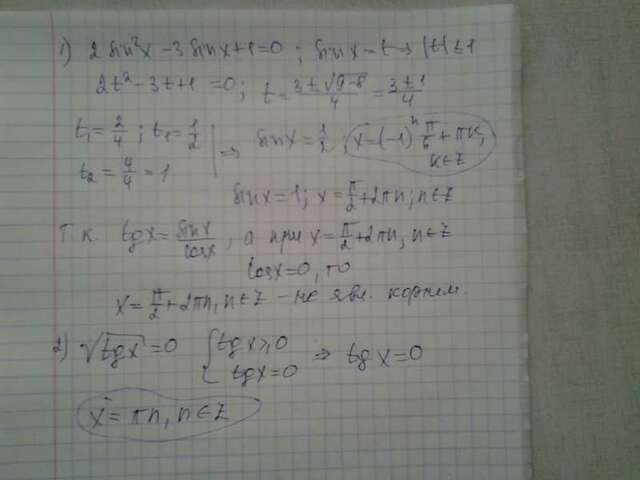 1) 2 sin²x - 3 sin x + 1 = 0 ; sin x = t → |t| ≤ 1
2t² - 3t + 1 = 0 ; t = (3 ± √(9-8))/4 = (3 ± 1)/4
t₁ = 2/4 ; t₁ = 1/2
t₂ = 4/4 = 1
⇒ sin x = 1/2 ; x = (-1)ⁿ π/6 + πk, k ∈ Z
sin x = 1 ; x = π/2 + 2πn ; n ∈ Z
Т.к. tg x = sin x/cos x, а при x = π/2 + 2πn, n ∈ Z
cos x = 0, то
x = π/2 + 2πn, n ∈ Z - не явл. корнем.
2) √tg x = 0 { tg x ≥ 0
tg x = 0 ⇒ tg x = 0
x = πn, n ∈ Z